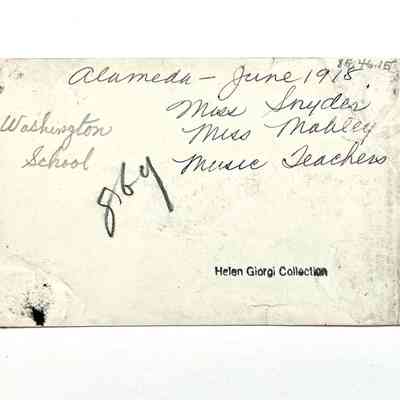 85.46.15
Alameda - June 1918
Miss Snyder
Washington Miss Mobley
School Music Teachers
Helen Giorgi Collection